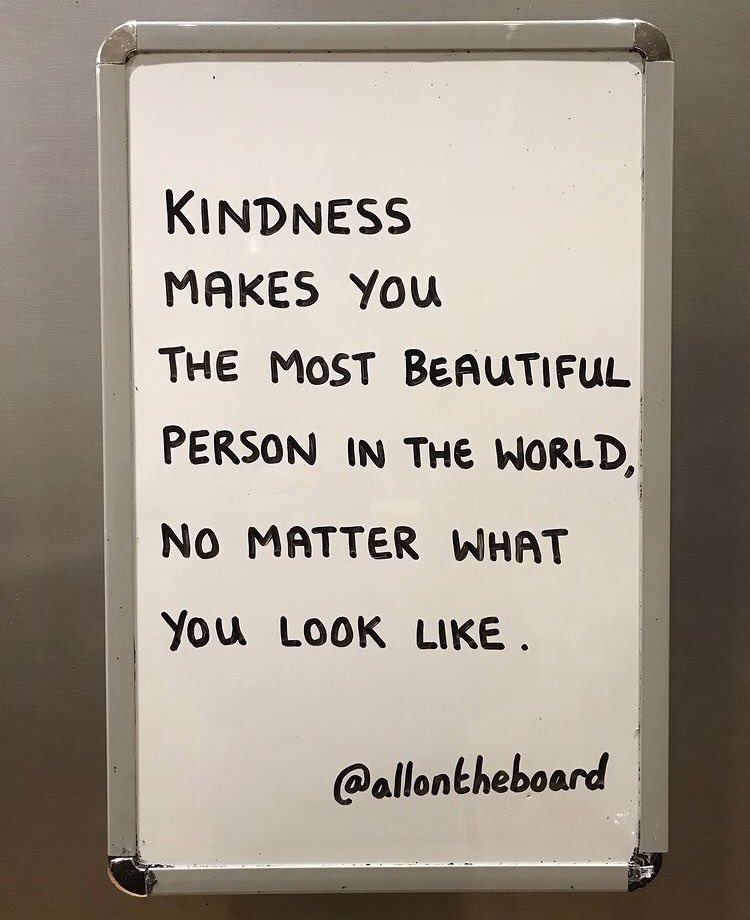 KINDNESS
MAKES YOU
THE MOST BEAUTIFUL
PERSON IN THE WORLD,
NO MATTER WHAT
YOU LOOK LIKE.
@allontheboard